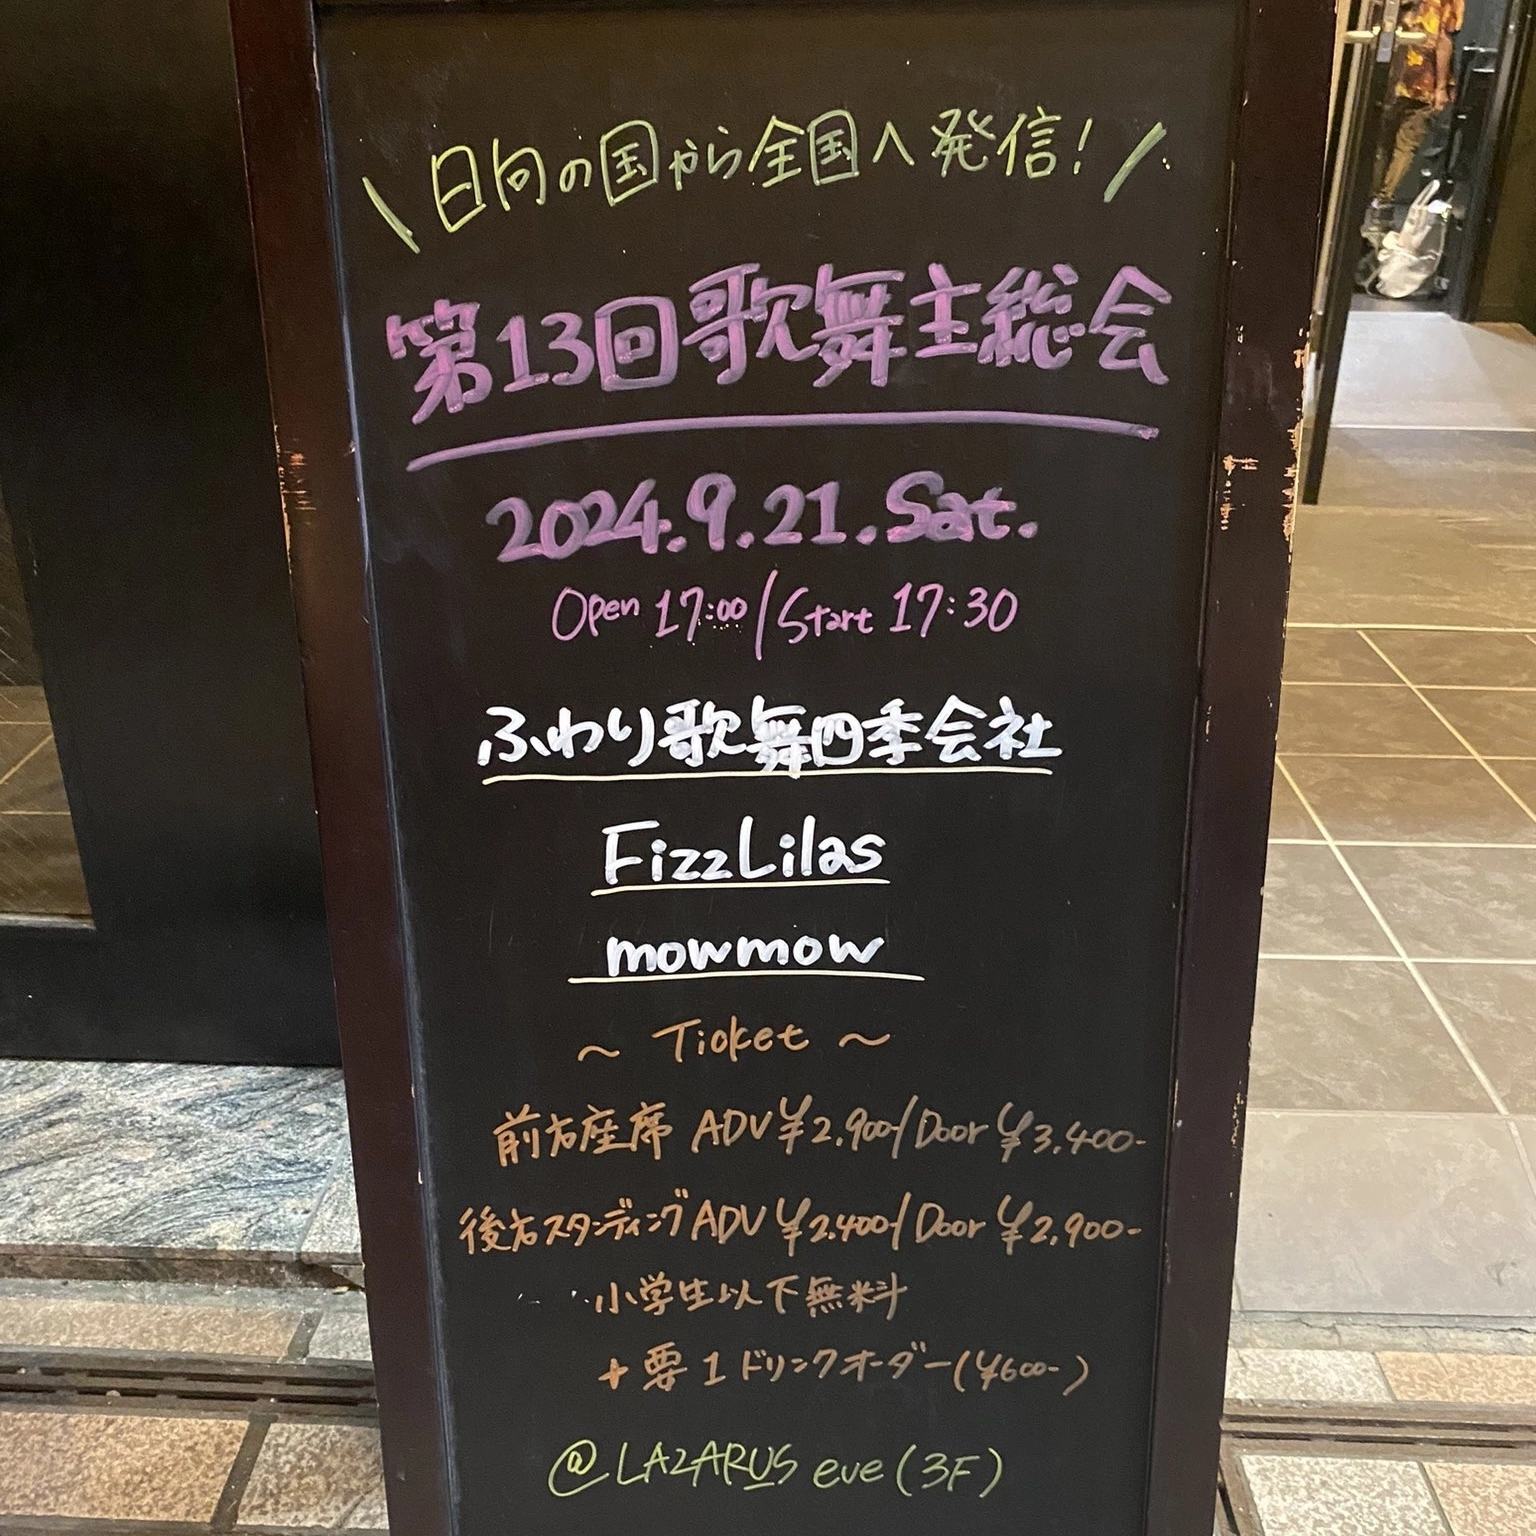 \ 日向の国から全国へ発信! /
第13回歌舞主総会
2024.9.21.Sat.
Open 17:00/Start 17:30
ふわり歌舞四季会社
FizzLilas
mowmow
~ Ticket ~
前方座席 ADV ¥2,900-/Door ¥3,400-
後方スタンディング ADV ¥2,400-/Door ¥2,900-
小学生以下無料
+要1ドリンクオーダー(¥600-)
@LAZARUS eve (3F)